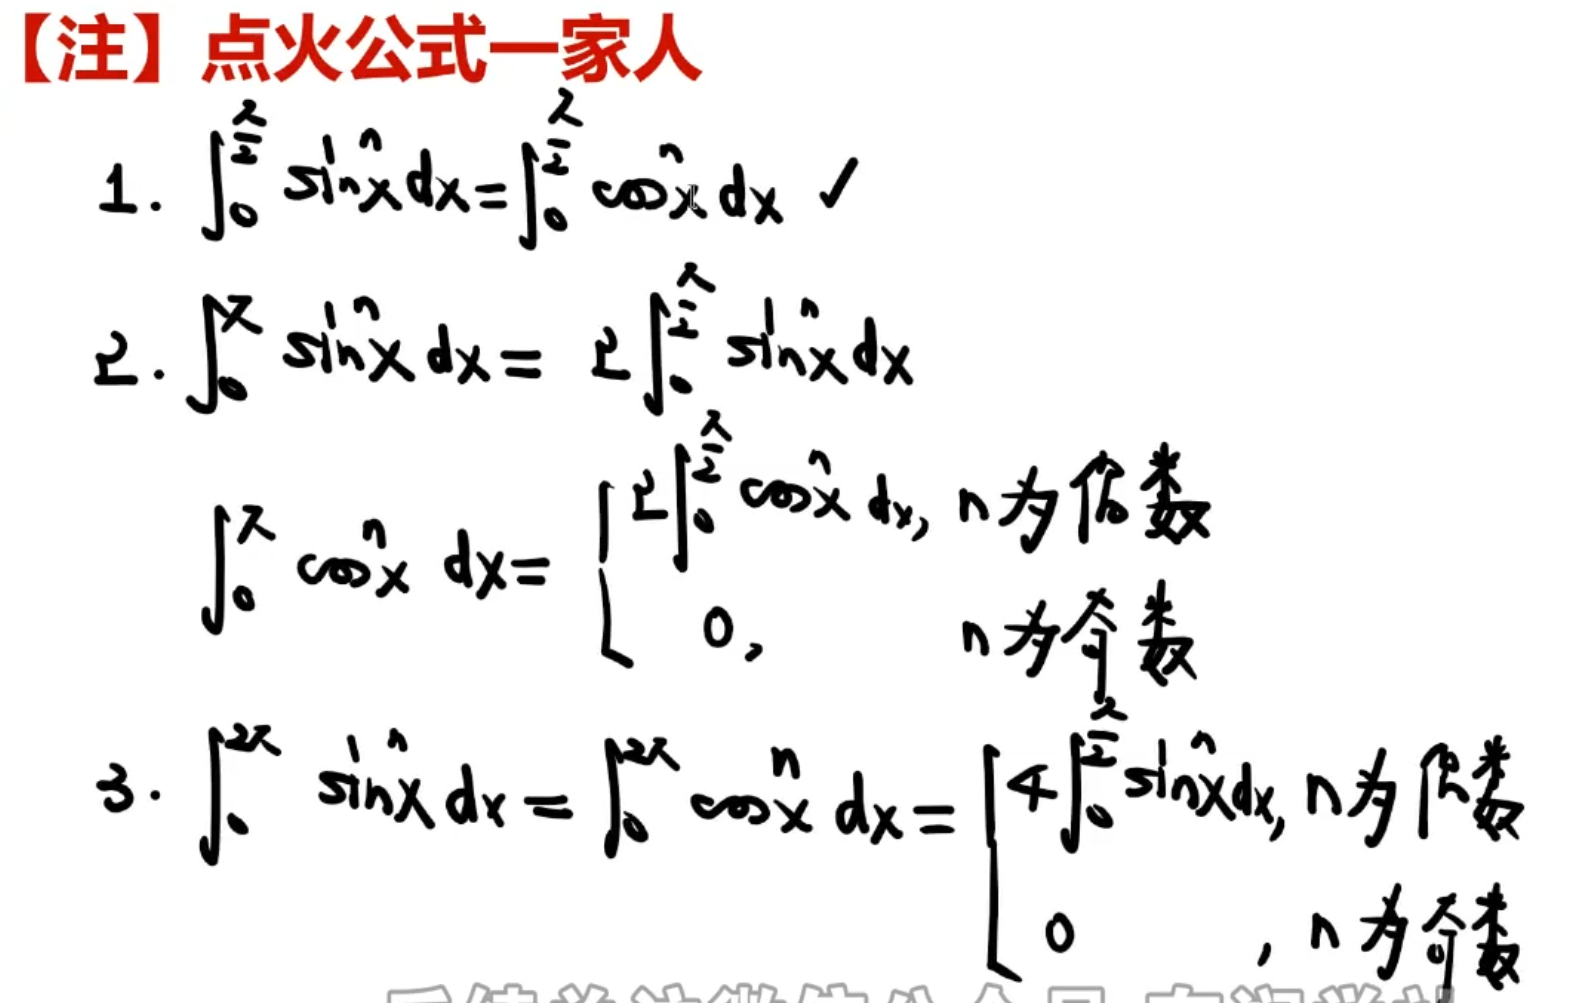 【注】点火公式一家人
1. ∫₀^(π/2) sinⁿx dx = ∫₀^(π/2) cosⁿx dx ✓
2. ∫₀^π sinⁿx dx = 2∫₀^(π/2) sinⁿx dx
∫₀^π cosⁿx dx = { 2∫₀^(π/2) cosⁿx dx, n为偶数
0, n为奇数
3. ∫₀^(2π) sinⁿx dx = ∫₀^(2π) cosⁿx dx = { 4∫₀^(π/2) sinⁿx dx, n为偶数
0, n为奇数